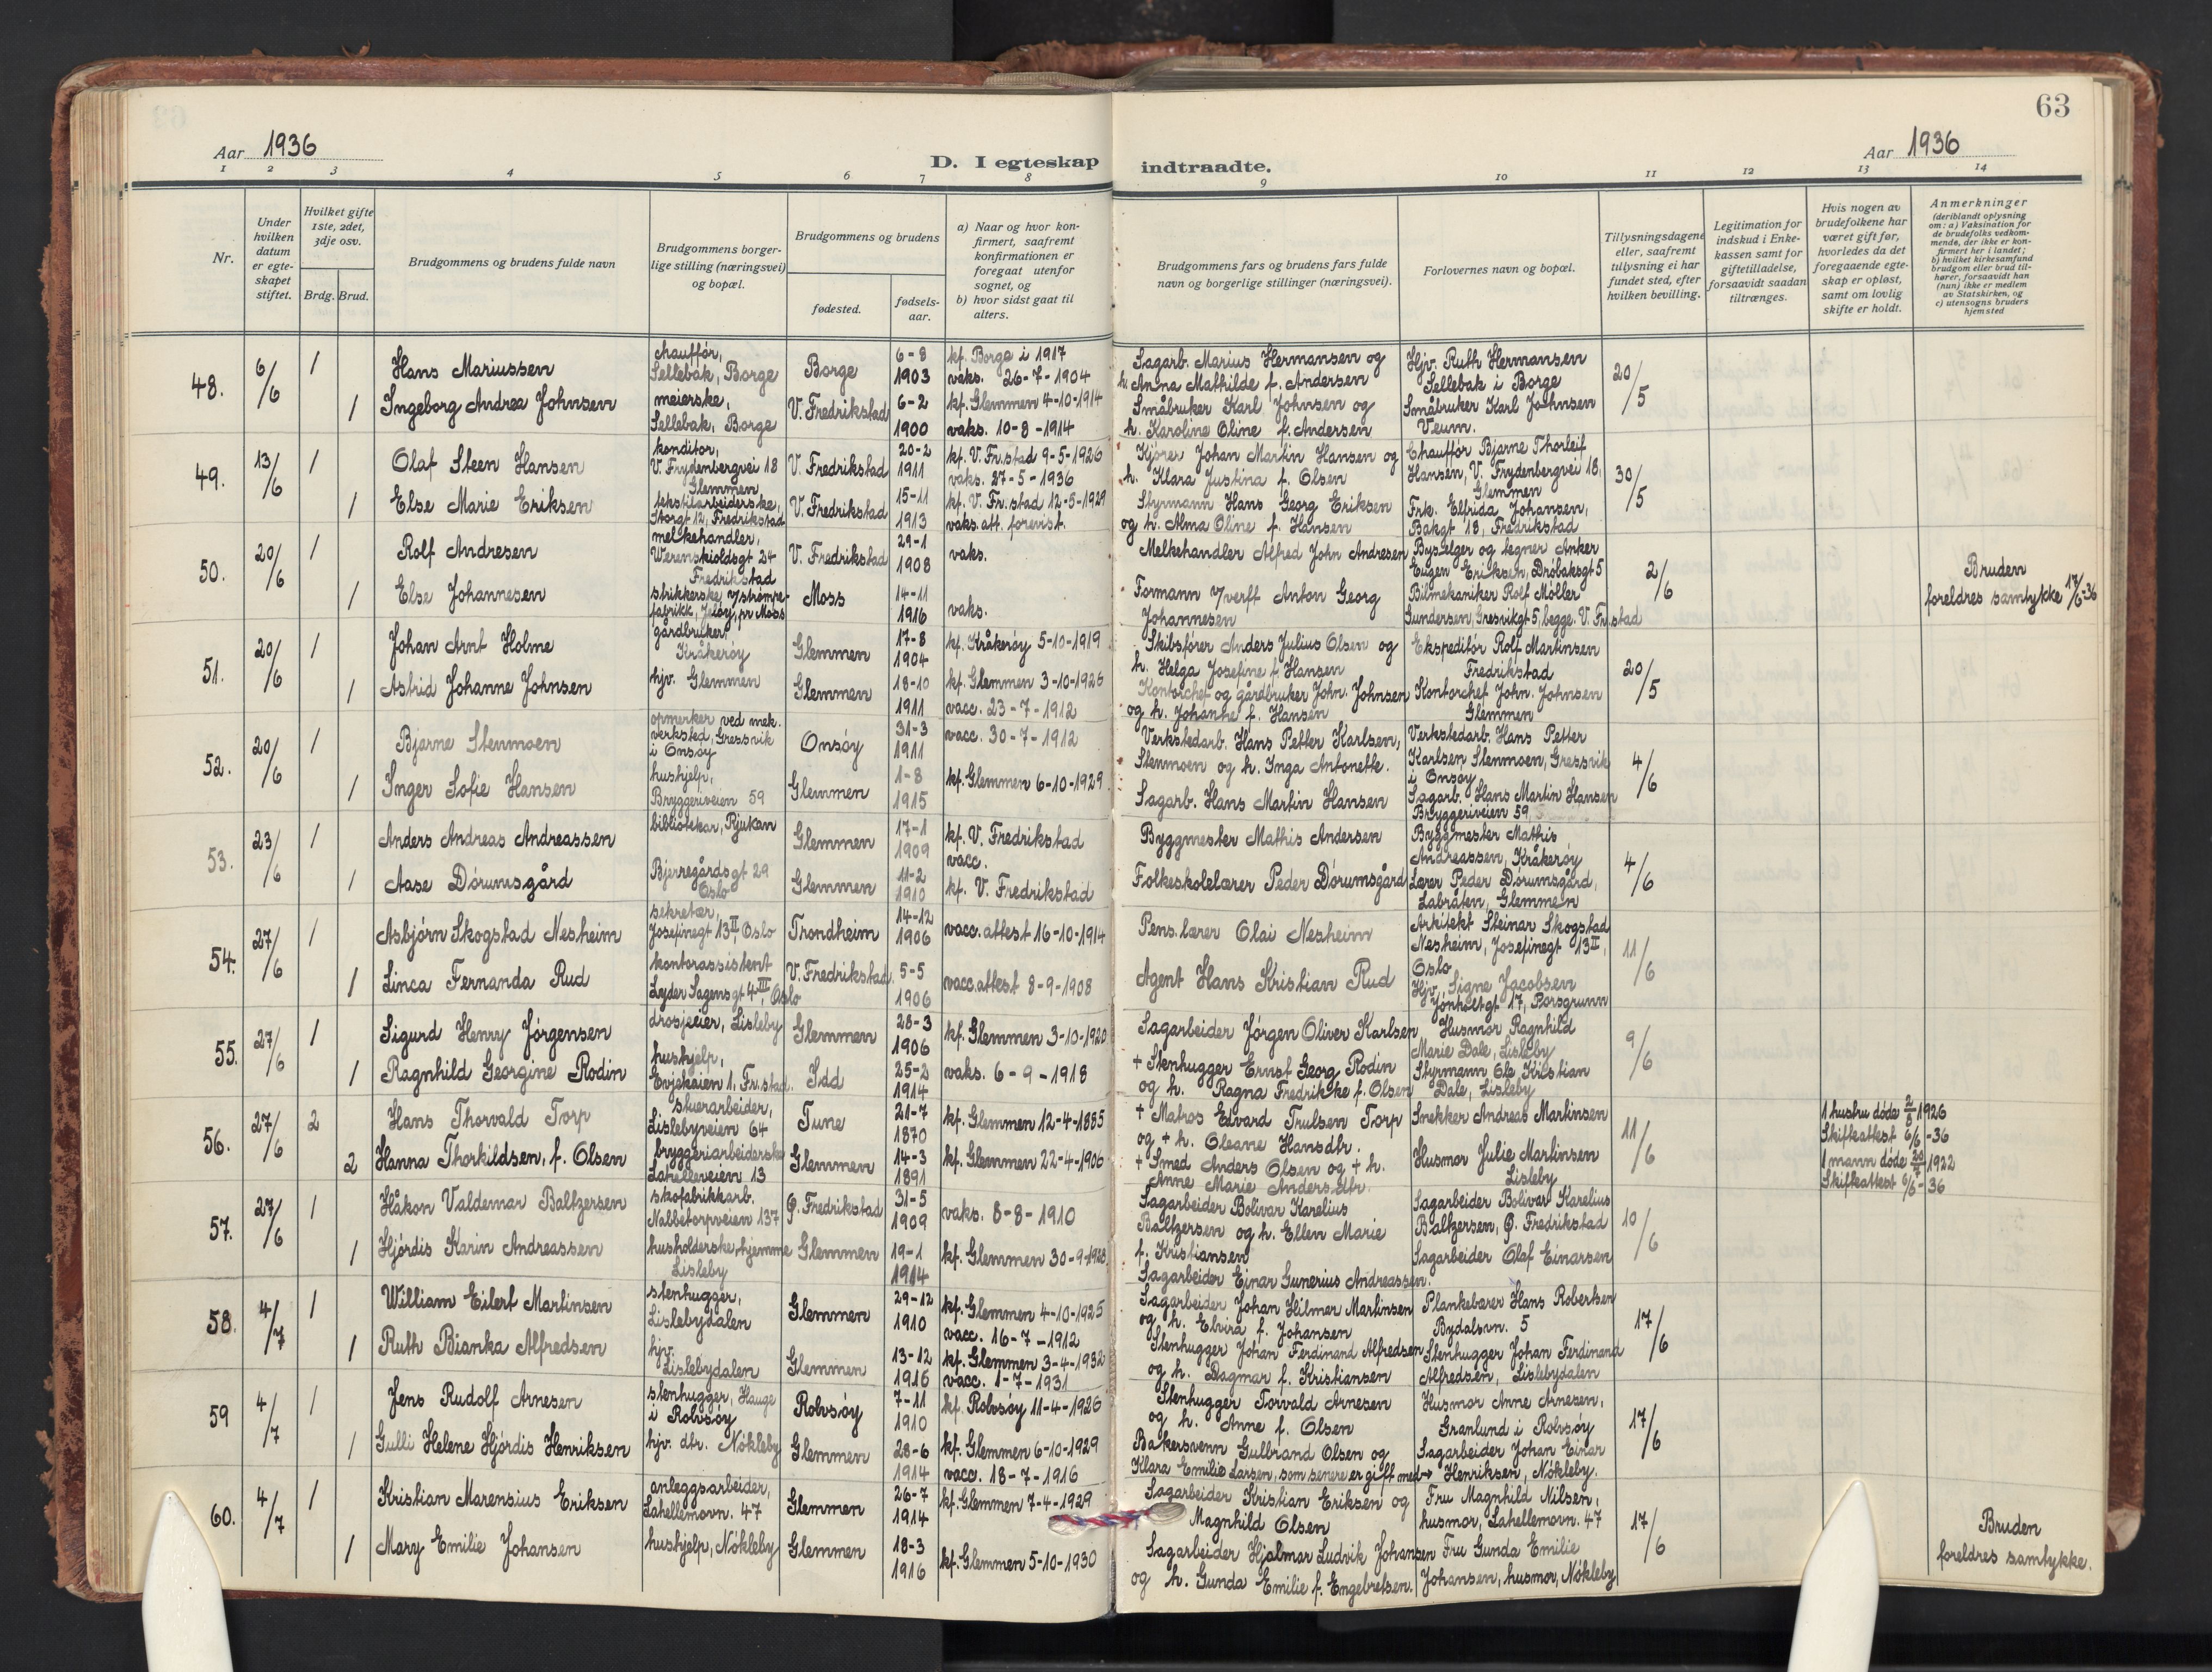 63
Aar 1936
D. I egteskap indtraadte.
Aar 1936
1 2 3 4 5 6 7 8 9 10 11 12 13 14
Nr.
Under hvilken datum er egteskapet stiftet.
Hvilket gifte 1ste, 2det, 3dje osv.
Brdg. Brud.
Brudgommens og brudens fulde navn
Brudgommens borgerlige stilling (næringsvei) og bopæl.
Brudgommens og brudens
fødested.
fødselsaar.
a) Naar og hvor konfirmert, saafremt konfirmationen er foregaat utenfor sognet, og
b) hvor sidst gaat til alters.
Brudgommens fars og brudens fars fulde navn og borgerlige stillinger (næringsvei).
Forlovernes navn og bopæl.
Tillysningsdagene eller, saafremt tillysning ei har fundet sted, efter hvilken bevilling.
Legitimation for indskud i Enkekassen samt for giftetilladelse, forsaavidt saadan tiltrænges.
Hvis nogen av brudefolkene har været gift før, hvorledes da det foregaaende egteskap er opløst, samt om lovlig skifte er holdt.
Anmerkninger (deriblandt oplysning om: a) Vaksination for de brudefolks vedkommende, der ikke er konfirmert her i landet; b) hvilket kirkesamfund brudgom eller brud tilhører, forsaavidt han (hun) ikke er medlem av Statskirken, og c) utensogns bruders hjemsted
48. 6/6 1 Hans Mariussen chauffør, Sellebak, Borge Borge 6-8 1903 kf. Borge i 1917 vaks. 26-7-1904 Sagarb. Marius Hermansen og h. Anna Mathilde f. Andersen Hjv. Ruth Hermansen Sellebak i Borge 20/5
1 Ingeborg Andrea Johnsen meierske, Sellebak, Borge V. Fredrikstad 6-2 1900 kf. Glemmen 4-10-1914 vaks. 10-8-1914 Småbruker Karl Johnsen og h. Karoline Oline f. Andersen Småbruker Karl Johnsen Veum.
49. 13/6 1 Olaf Steen Hansen konditor, V. Frydenbergvei 18 Glemmen V. Fredrikstad 20-2 1911 kf. V. Fr.stad 9-5-1926 vaks. 27-5-1936 Kjører Johan Martin Hansen og h. Klara Justina f. Olsen Chauffør Bjarne Thorleif Hansen, V. Frydenbergvei 18, Glemmen 30/5
1 Else Marie Eriksen tekstilarbeiderske, Storgt 12, Fredrikstad V. Fredrikstad 15-11 1913 kf. V. Fr.stad 12-5-1929 vaks. att. forevist. Styrmann Hans Georg Eriksen og h. Alma Oline f. Hansen Frk. Elfrida Johansen, Bakgt 18, Fredrikstad
50. 20/6 1 Rolf Andresen melkehandler, Werenskioldsgt 24 Fredrikstad V. Fredrikstad 29-1 1908 vaks. Melkehandler Alfred John Andresen Byselger og tegner Anker Eugen Eriksen, Drøbaksgt 5 2/6
1 Else Johannesen strikkerske v/strømpefabrikk, Jeløy, pr Moss Moss 14-11 1916 vaks. Formann v/verft Anton Georg Johannesen Bilmekaniker Rolf Møller Gundersen, Gresvikgt 5, begge V. Fr.stad Bruden foreldres samtykke 17/6-36
51. 20/6 1 Johan Arnt Holme gårdbruker, Kråkerøy Glemmen 17-8 1904 kf. Kråkerøy 5-10-1919 Skibsfører Anders Julius Olsen og h. Helga Josefine f. Hansen Ekspeditør Rolf Martinsen Fredrikstad 20/5
1 Astrid Johanne Johnsen hjv. Glemmen Glemmen 18-10 1911 kf. Glemmen 3-10-1926 vacc. 23-7-1912 Kontorchef og gårdbruker John. Johnsen og h. Johanne f. Hansen Kontorchef John. Johnsen Glemmen
52. 20/6 1 Bjarne Stenmoen opmerker ved mek. verksted, Gressvik i Onsøy Onsøy 31-3 1911 vacc. 30-7-1912 Verkstedarb. Hans Petter Karlsen, Stenmoen og h. Inga Antonette. Verkstedarb. Hans Petter Karlsen Stenmoen, Gressvik i Onsøy 4/6
1 Inger Sofie Hansen hushjelp, Bryggeriveien 59 Glemmen 1-8 1915 kf. Glemmen 6-10-1929 Sagarb. Hans Martin Hansen Sagarb. Hans Martin Hansen Bryggeriveien 59
53. 23/6 1 Anders Andreas Andreassen bibliotekar, Rjukan Glemmen 17-1 1909 kf. V. Fredrikstad vacc. Byggmester Mathis Andersen Byggmester Mathis Andreassen, Kråkerøy 4/6
1 Aase Dørumsgård Bjerregårdsgt 29 Oslo Glemmen 11-2 1910 kf. V. Fredrikstad Folkeskolelærer Peder Dørumsgård Lærer Peder Dørumsgård, Labråten, Glemmen
54. 27/6 1 Asbjørn Skogstad Nesheim sekretær, Josefinegt 13 II, Oslo Trondheim 14-12 1906 vacc. attest 16-10-1914 Pens. lærer Olai Nesheim Arkitekt Steinar Skogstad Nesheim, Josefinegt 13 II, Oslo 11/6
1 Linca Fernanda Rud kontorassistent Lyder Sagens gt 4 III, Oslo V. Fredrikstad 5-5 1906 vacc. attest 8-9-1908 Agent Hans Kristian Rud Hjv. Signe Jacobsen Jønholtgt 17, Porsgrunn
55. 27/6 1 Sigurd Henry Jørgensen drosjeeier, Lisleby Glemmen 28-3 1906 kf. Glemmen 3-10-1920 Sagarbeider Jørgen Oliver Karlsen Husmor Ragnhild Marie Dale, Lisleby 9/6
1 Ragnhild Georgine Rodin hushjelp, Evjekaien 1. Fr.stad. Idd 25-2 1914 vaks. 6-9-1918 + Stenhugger Ernst Georg Rodin og h. Ragna Fredrikke f. Olsen Styrmann Ole Kristian Dale, Lisleby
56. 27/6 2 Hans Thorvald Torp stuerarbeider, Lislebyveien 64 Tune 21-7 1870 kf. Glemmen 12-4-1885 + Matros Edvard Trulsen Torp og + h. Oleane Hansdtr. Snekker Andreas Martinsen 11/6 1 hustru døde 2/5 1926 Skifteattest 6/6-36
2 Hanna Thorkildsen, f. Olsen bryggeriarbeiderske Lahelleveien 13 Glemmen 14-3 1891 kf. Glemmen 22-4-1906 + Smed Anders Olsen og + h. Anne Marie Andersdtr. Husmor Julie Martinsen Lisleby 1 mann døde 1922 Skifteattest 6/6-36
57. 27/6 1 Håkon Valdemar Baltzersen skofabrikkarb. Nabbetorpveien 137 Ø. Fredrikstad 31-5 1909 vaks. 8-8-1910 Sagarbeider Bolivar Karelius Baltzersen og h. Ellen Marie f. Kristiansen Sagarbeider Bolivar Karelius Baltzersen, Ø. Fredrikstad 10/6
1 Hjørdis Karin Andreassen husholderske, hjemme Lisleby Glemmen 19-1 1914 kf. Glemmen 30-9-1928 Sagarbeider Einar Gunerius Andreassen. Sagarbeider Olaf Einarsen
58. 4/7 1 William Eilert Martinsen stenhugger, Lislebydalen Glemmen 29-12 1910 kf. Glemmen 4-10-1925 vacc. 16-7-1912 Sagarbeider Johan Hilmar Martinsen og h. Elvira f. Johansen Plankebærer Hans Robertsen Bydalsvn. 5 17/6
1 Ruth Bianka Alfredsen hjv. Lislebydalen Glemmen 13-12 1916 kf. Glemmen 3-4-1932 vacc. 1-7-1931 Stenhugger Johan Ferdinand Alfredsen og h. Dagmar f. Kristiansen Stenhugger Johan Ferdinand Alfredsen, Lislebydalen
59 4/7 1 Jens Rudolf Arnesen stenhugger, Hauge i Rolvsøy Rolvsøy 7-11 1910 kf. Rolvsøy 11-4-1926 Stenhugger Torvald Arnesen og h. Anne f. Olsen Husmor Anne Arnesen, Granlund i Rolvsøy 17/6
1 Gulli Helene Hjørdis Henriksen hjv. dtr. Nøkleby Glemmen 28-6 1914 kf. Glemmen 6-10-1929 vacc. 18-7-1916 Bakersvenn Gulbrand Olsen og Klara Emilie Larsen, som senere er gift med → Sagarbeider Johan Einar Henriksen, Nøkleby.
60. 4/7 1 Kristian Marensius Eriksen anleggsarbeider, Lahellemovn. 47 Glemmen 26-7 1914 kf. Glemmen 7-4-1929 Sagarbeider Kristian Eriksen og Magnhild Olsen Fru Magnhild Nilsen, husmor, Lahellemovn. 47 17/6
1 Mary Emilie Johansen hushjelp, Nøkleby Glemmen 18-3 1916 kf. Glemmen 5-10-1930 Sagarbeider Hjalmar Ludvik Johansen og h. Gunda Emilie f. Engebretsen. Fru Gunda Emilie Johansen, husmor, Nøkleby Bruden foreldres samtykke.